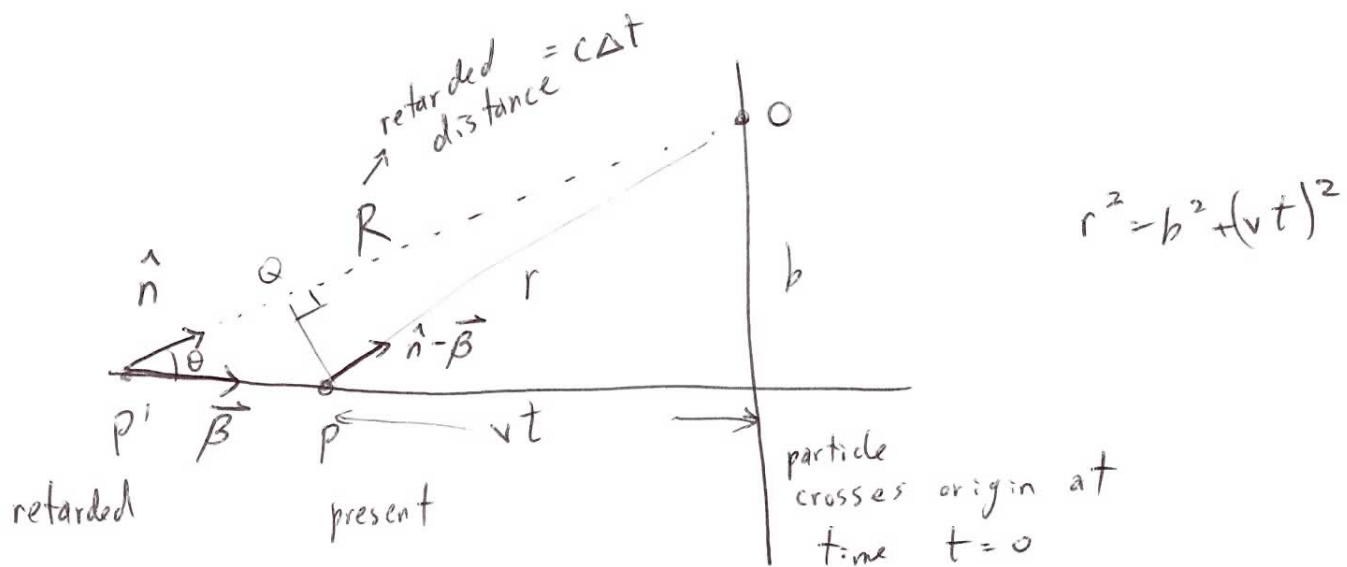 retarded = cΔt
distance
R
O
r² = b² + (vt)²
Q
n̂
r
b
θ
n̂ - β⃗
P'
β⃗
P
vt
retarded
present
particle
crosses origin at
time t = 0